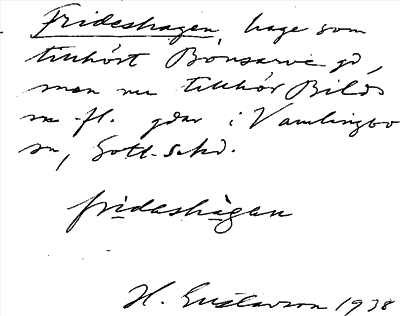 Frideshagen, hage som
tillhört Bonsarve gd,
men nu tillhör Bilds
m. fl. gdar i Vamlingbo
sn, Gotl. Schd.
frideshagen
H. Gustavson 1938